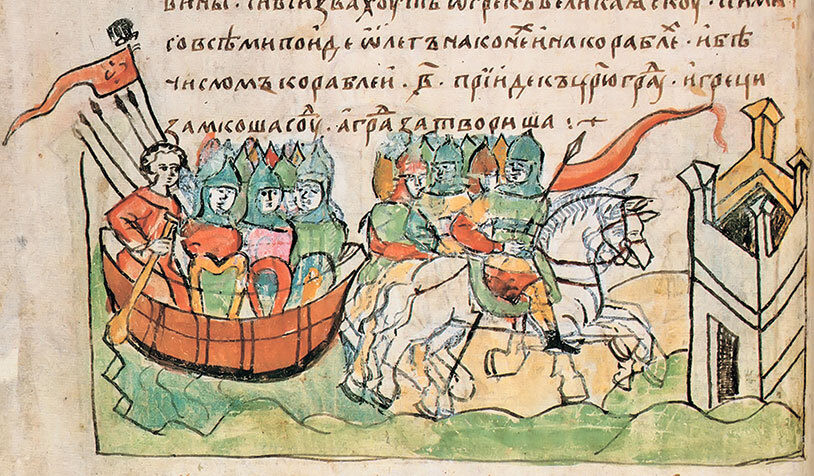 вины · сивсизвахоуть ѿгрекъ великаꙗ скоу · сими
совсѣми поиде ѡлегъ наконеⷯ инакораблеⷯ · ибѣ
числомъ кораблей · в҃ · прїиде къ цр҃юграⷣ · игреци
замкоша соуⷣ · аграⷣ затвориша :+